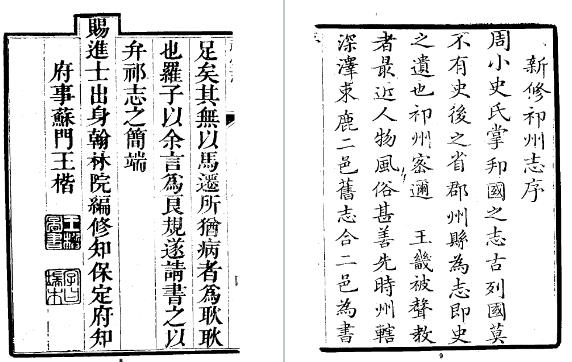 新修祁州志序
周小史氏掌邦國之志古列國莫
不有史後之省郡州縣為志即史
之遺也祁州密邇 王畿被聲教
者最近人物風俗甚善先時州轄
深澤束鹿二邑舊志合二邑為書
足矣其無以馬遷所猶病者為耿耿
也羅子以余言為良規遂請書之以
弁祁志之簡端
賜進士出身翰林院編修知保定府知
府事蘇門王楷